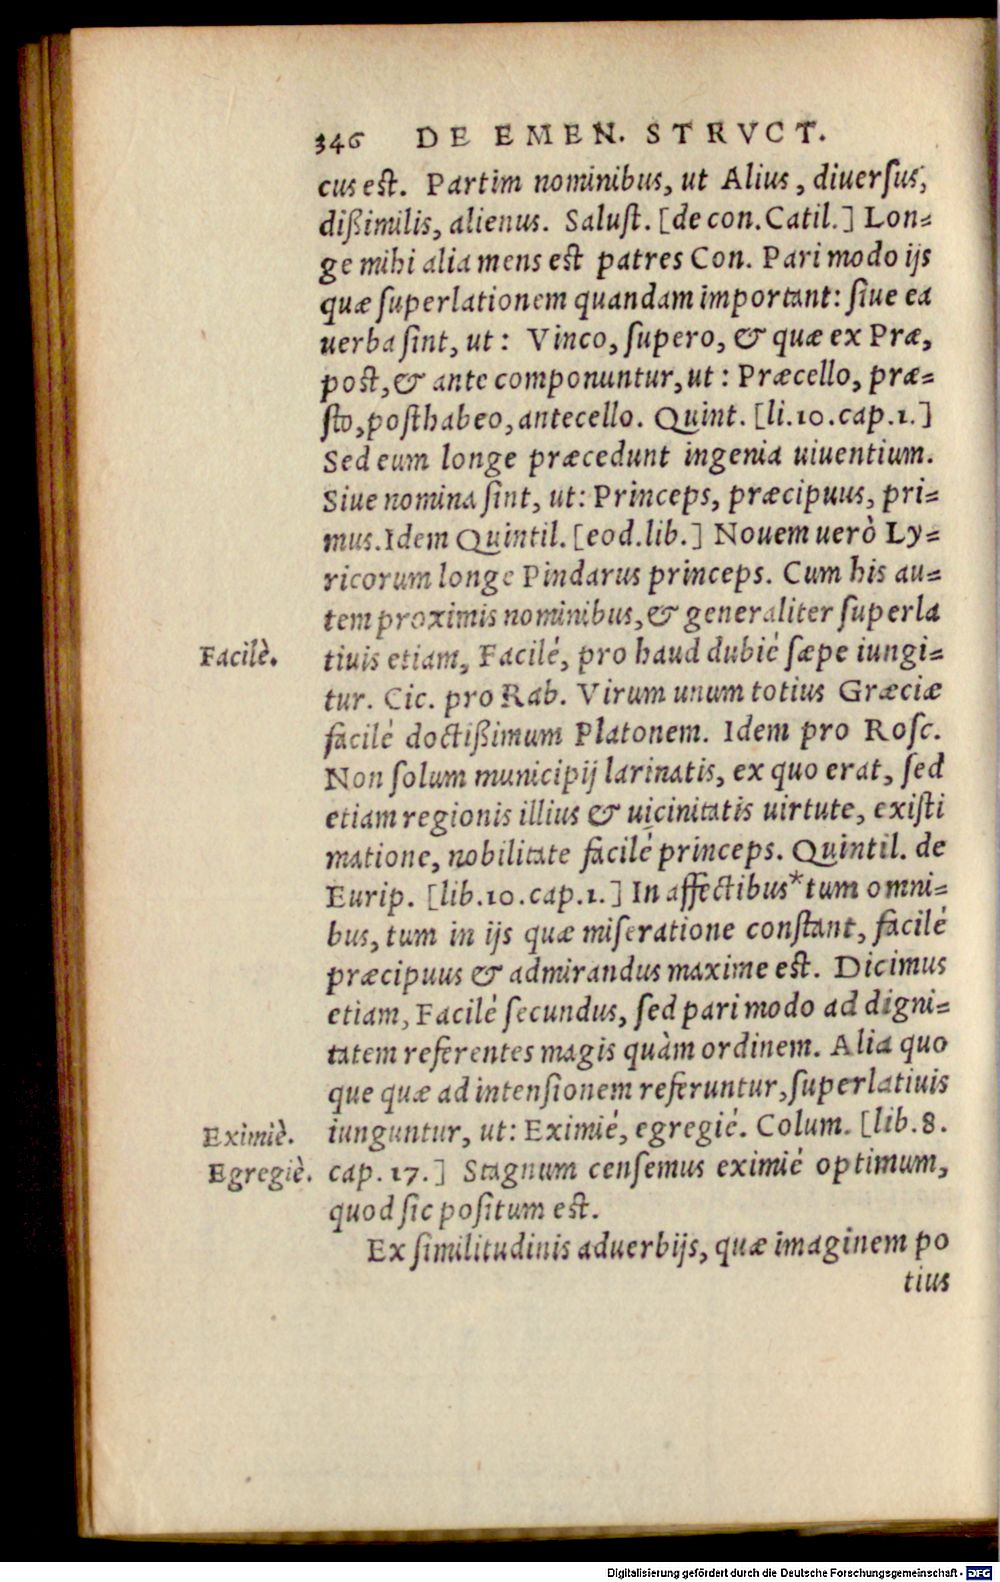 346 DE EMEN. STRVCT.
cus est. Partim nominibus, ut Alius, diuersus,
dißimilis, alienus. Salust. [de con. Catil.] Lon=
ge mihi alia mens est patres Con. Pari modo ijs
quæ superlationem quandam important: siue ea
uerba sint, ut: Vinco, supero, & quæ ex Præ,
post, & ante componuntur, ut: Præcello, præ=
sto, posthabeo, antecello. Quint. [li.10.cap.1.]
Sed eum longe præcedunt ingenia uiuentium.
Siue nomina sint, ut: Princeps, præcipuus, pri=
mus. Idem Quintil. [eod. lib.] Nouem uerò Ly=
ricorum longe Pindarus princeps. Cum his au=
tem proximis nominibus, & generaliter superla
Facilè.
tiuis etiam, Facilé, pro haud dubié sæpe iungi=
tur. Cic. pro Rab. Virum unum totius Græciæ
facilé doctißimum Platonem. Idem pro Rosc.
Non solum municipij larinatis, ex quo erat, sed
etiam regionis illius & uicinitatis uirtute, existi
matione, nobilitate facilé princeps. Quintil. de
Eurip. [lib.10.cap.1.] In affectibus* tum omni=
bus, tum in ijs quæ miseratione constant, facilé
præcipuus & admirandus maxime est. Dicimus
etiam, Facilé secundus, sed pari modo ad digni=
tatem referentes magis quàm ordinem. Alia quo
que quæ ad intensionem referuntur, superlatiuis
Eximiè.
iunguntur, ut: Eximié, egregié. Colum. [lib. 8.
Egregiè.
cap. 17.] Stagnum censemus eximié optimum,
quod sic positum est.
Ex similitudinis aduerbijs, quæ imaginem po
tius
Digitalisierung gefördert durch die Deutsche Forschungsgemeinschaft - DFG